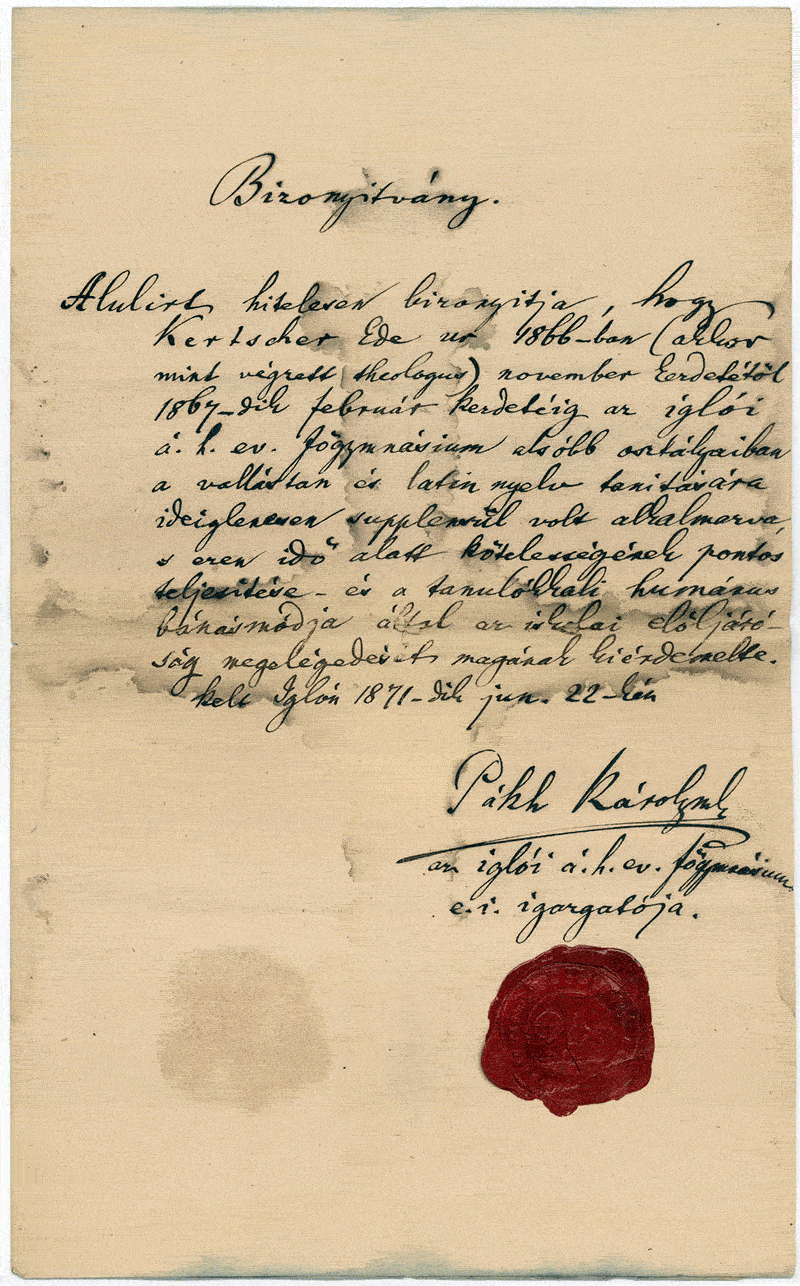 Bizonyitvány.
Alulirt hitelesen bizonyitja, hogy
Kertscher Ede ur 1866-ban (akkor
mint végzett theologus) november kezdetétöl
1867-dik február kezdetéig az iglói
á. h. ev. fögymnásium alsóbb osztályaiban
a vallástan és latin nyelv tanitására
ideiglenesen supplensül volt alkalmazva,
s ezen idő alatt kötelességének pontos
teljesitése - és a tanulókkali humánus
bánásmódja által az iskolai elöljáró-
ság megelégedését magának kiérdemelte.
Kelt Iglón 1871-dik jun. 22-kén
Pákh Károly mk
az iglói á. h. ev. fögymnásium
e. i. igazgatója.